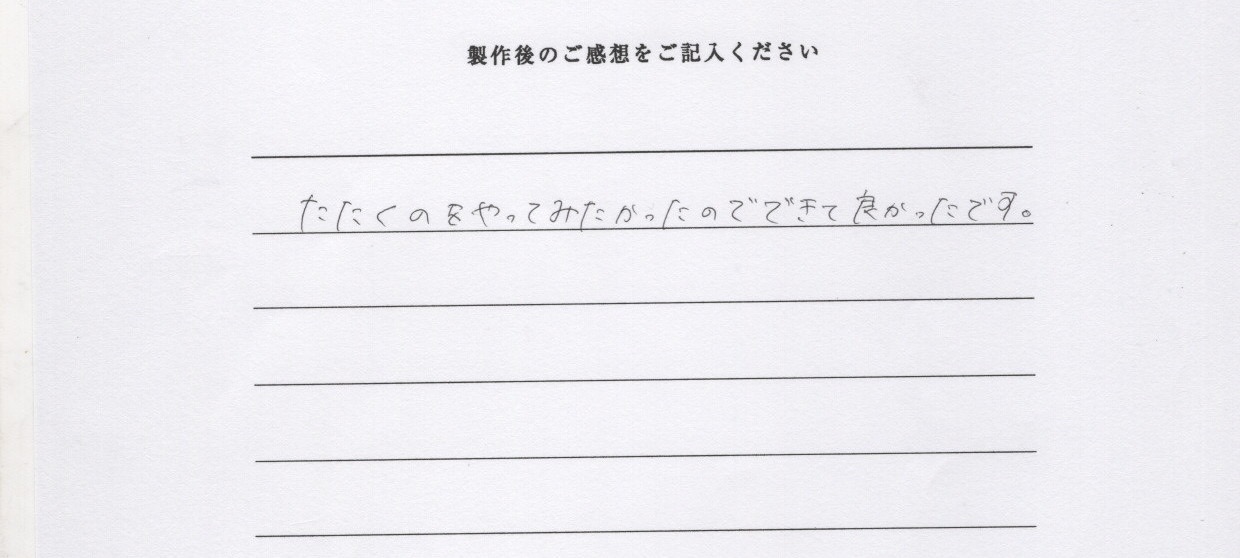 製作後のご感想をご記入ください
たたくのをやってみたかったのでできて良かったです。